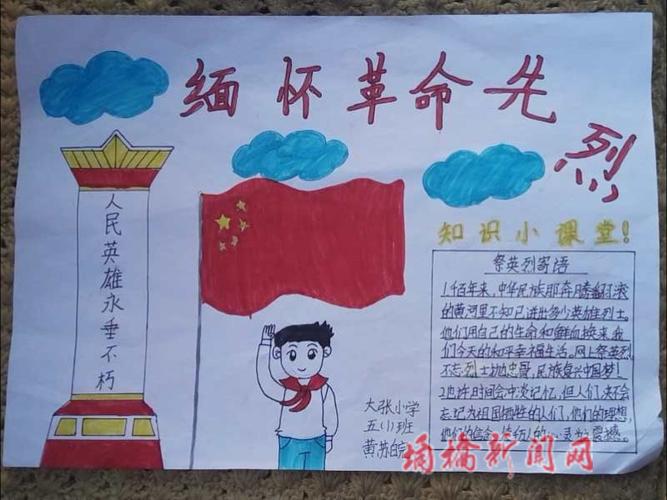 缅怀革命先
烈
人民英雄永垂不朽
知识小课堂!
祭英烈寄语
1、百年来,中华民族那奔腾翻滚
的黄河里不知已迸出多少英雄烈士。
他们用自己的生命和鲜血换来我
们今天的和平幸福生活。网上祭英烈
不忘烈士忠哥,民族复兴中国梦!
2、也许时间会冲淡记忆,但人们决不会
忘记为祖国牺牲的人们,他们的理想,
他们的信念
震撼。
大张小学
五(1)班
黄苏皖
埇桥新闻网